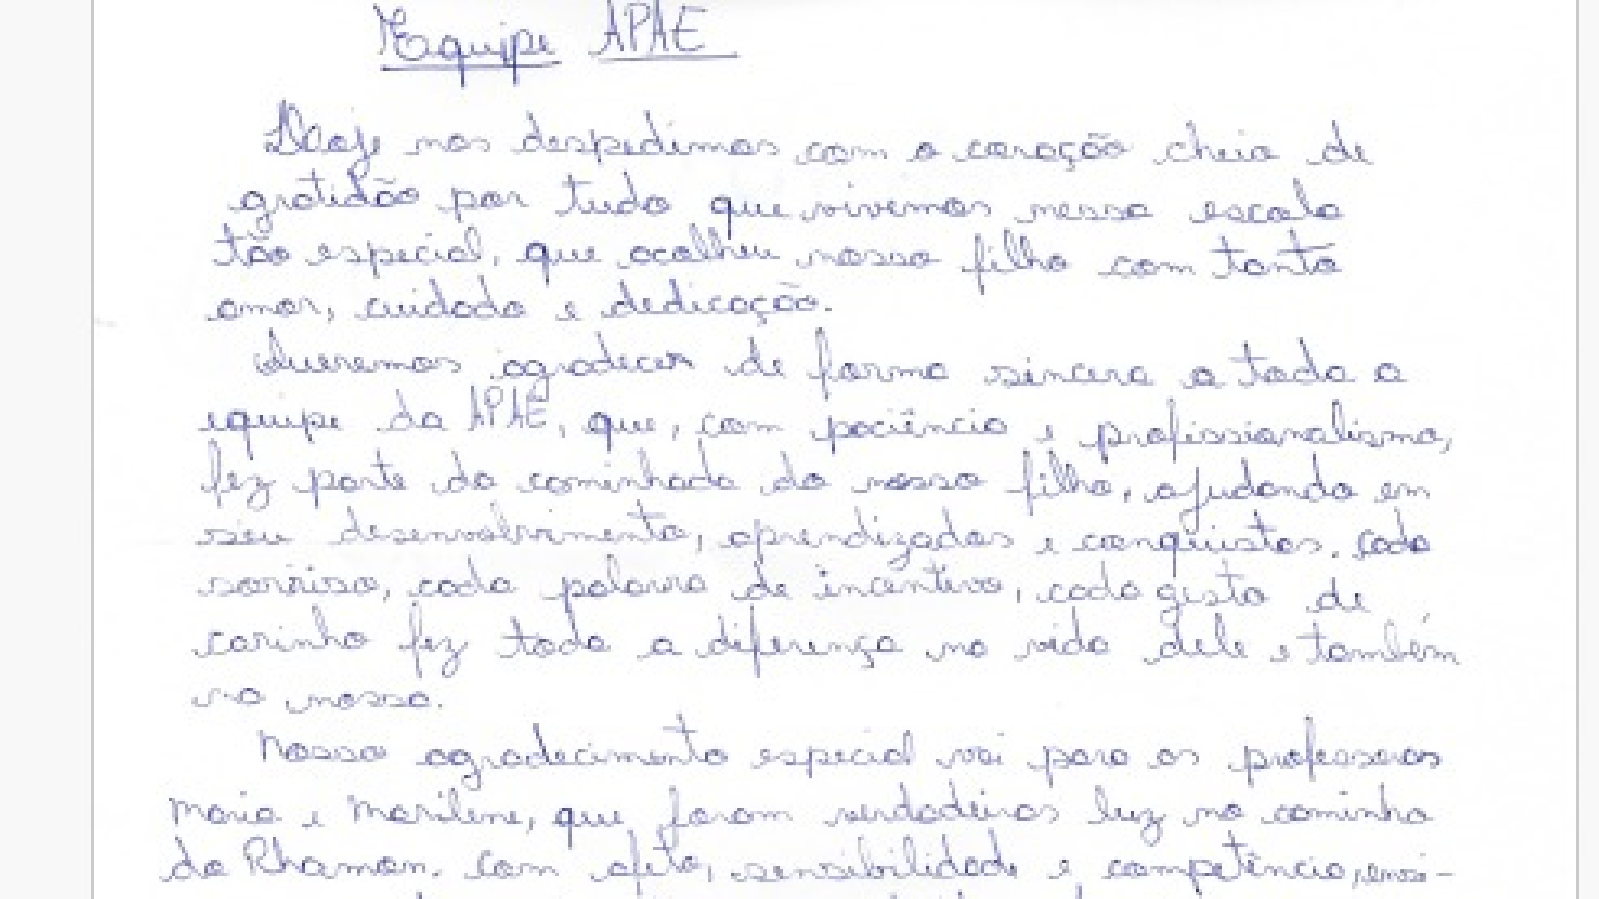 Equipe APAE
Hoje nos despedimos com o coração cheio de
gratidão por tudo que vivemos nessa escola
tão especial, que acolheu nosso filho com tanto
amor, cuidado e dedicação.
Queremos agradecer de forma sincera a toda a
equipe da APAE, que, com paciência e profissionalismo,
fez parte da caminhada do nosso filho, ajudando em
seu desenvolvimento, aprendizados e conquistas. Cada
sorriso, cada palavra de incentivo, cada gesto de
carinho fez toda a diferença na vida dele e também
na nossa.
Nosso agradecimento especial vai para as professoras
Maria e Marilene, que foram verdadeiras luz no caminho
do Rhamon. Com afeto, sensibilidade e competência, ensi-